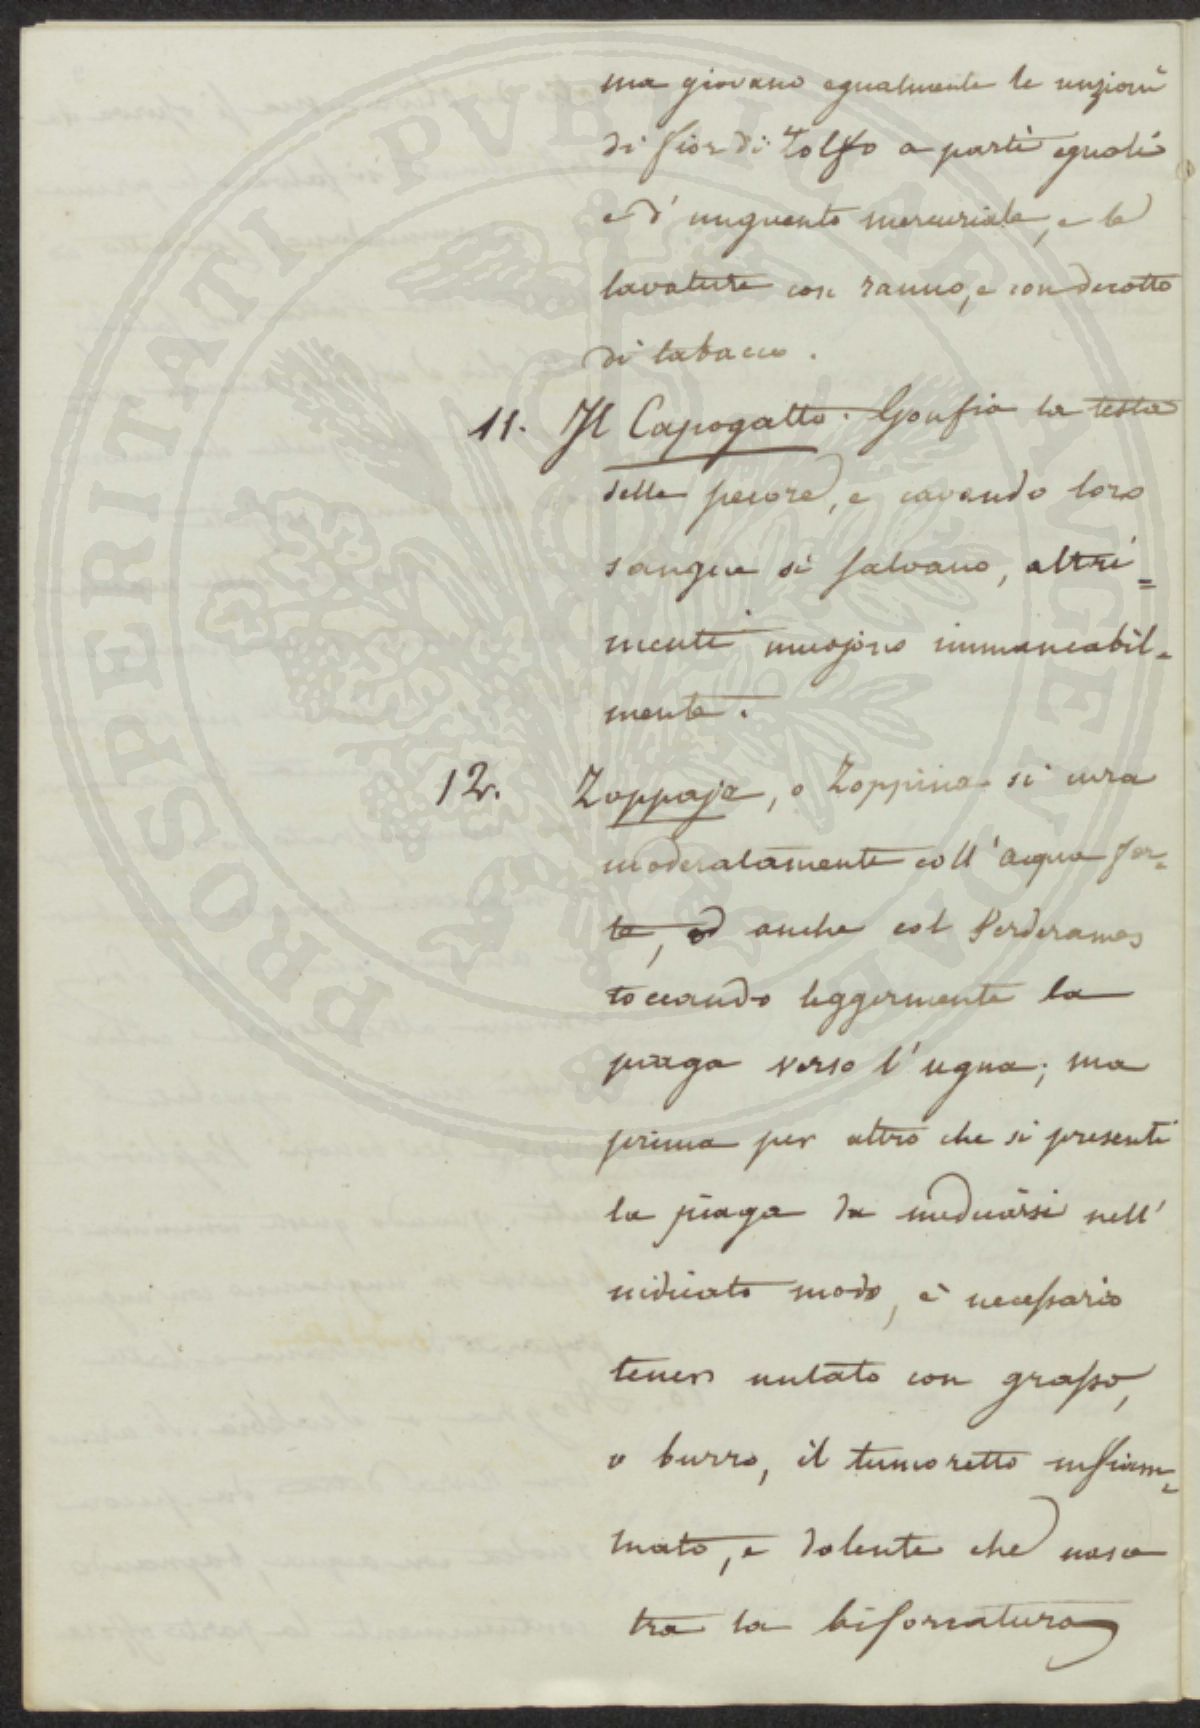 ma giovano egualmente le unzioni
di fior di Zolfo a parti eguali
e d'unguento mercuriale, e le
lavature con ranno, e con decotto
di tabacco.
11. Il Capogatto. Gonfia la testa
delle pecore, e cavando loro
sangue si salvano, altri=
menti muojono immancabil=
mente.
12. Zoppaja, o Zoppina si cura
moderatamente coll'acqua for=
te, od anche col Verderame
toccando leggermente la
piaga verso l'ugna; ma
prima per altro che si presenti
la piaga da medicarsi nell'
indicato modo, è necessario
tener untato con grasso,
o burro, il tumoretto infiam=
mato, e dolente che nasce
tra la biforcatura
PROSPERITATI PVBLICAE AVGENDAE